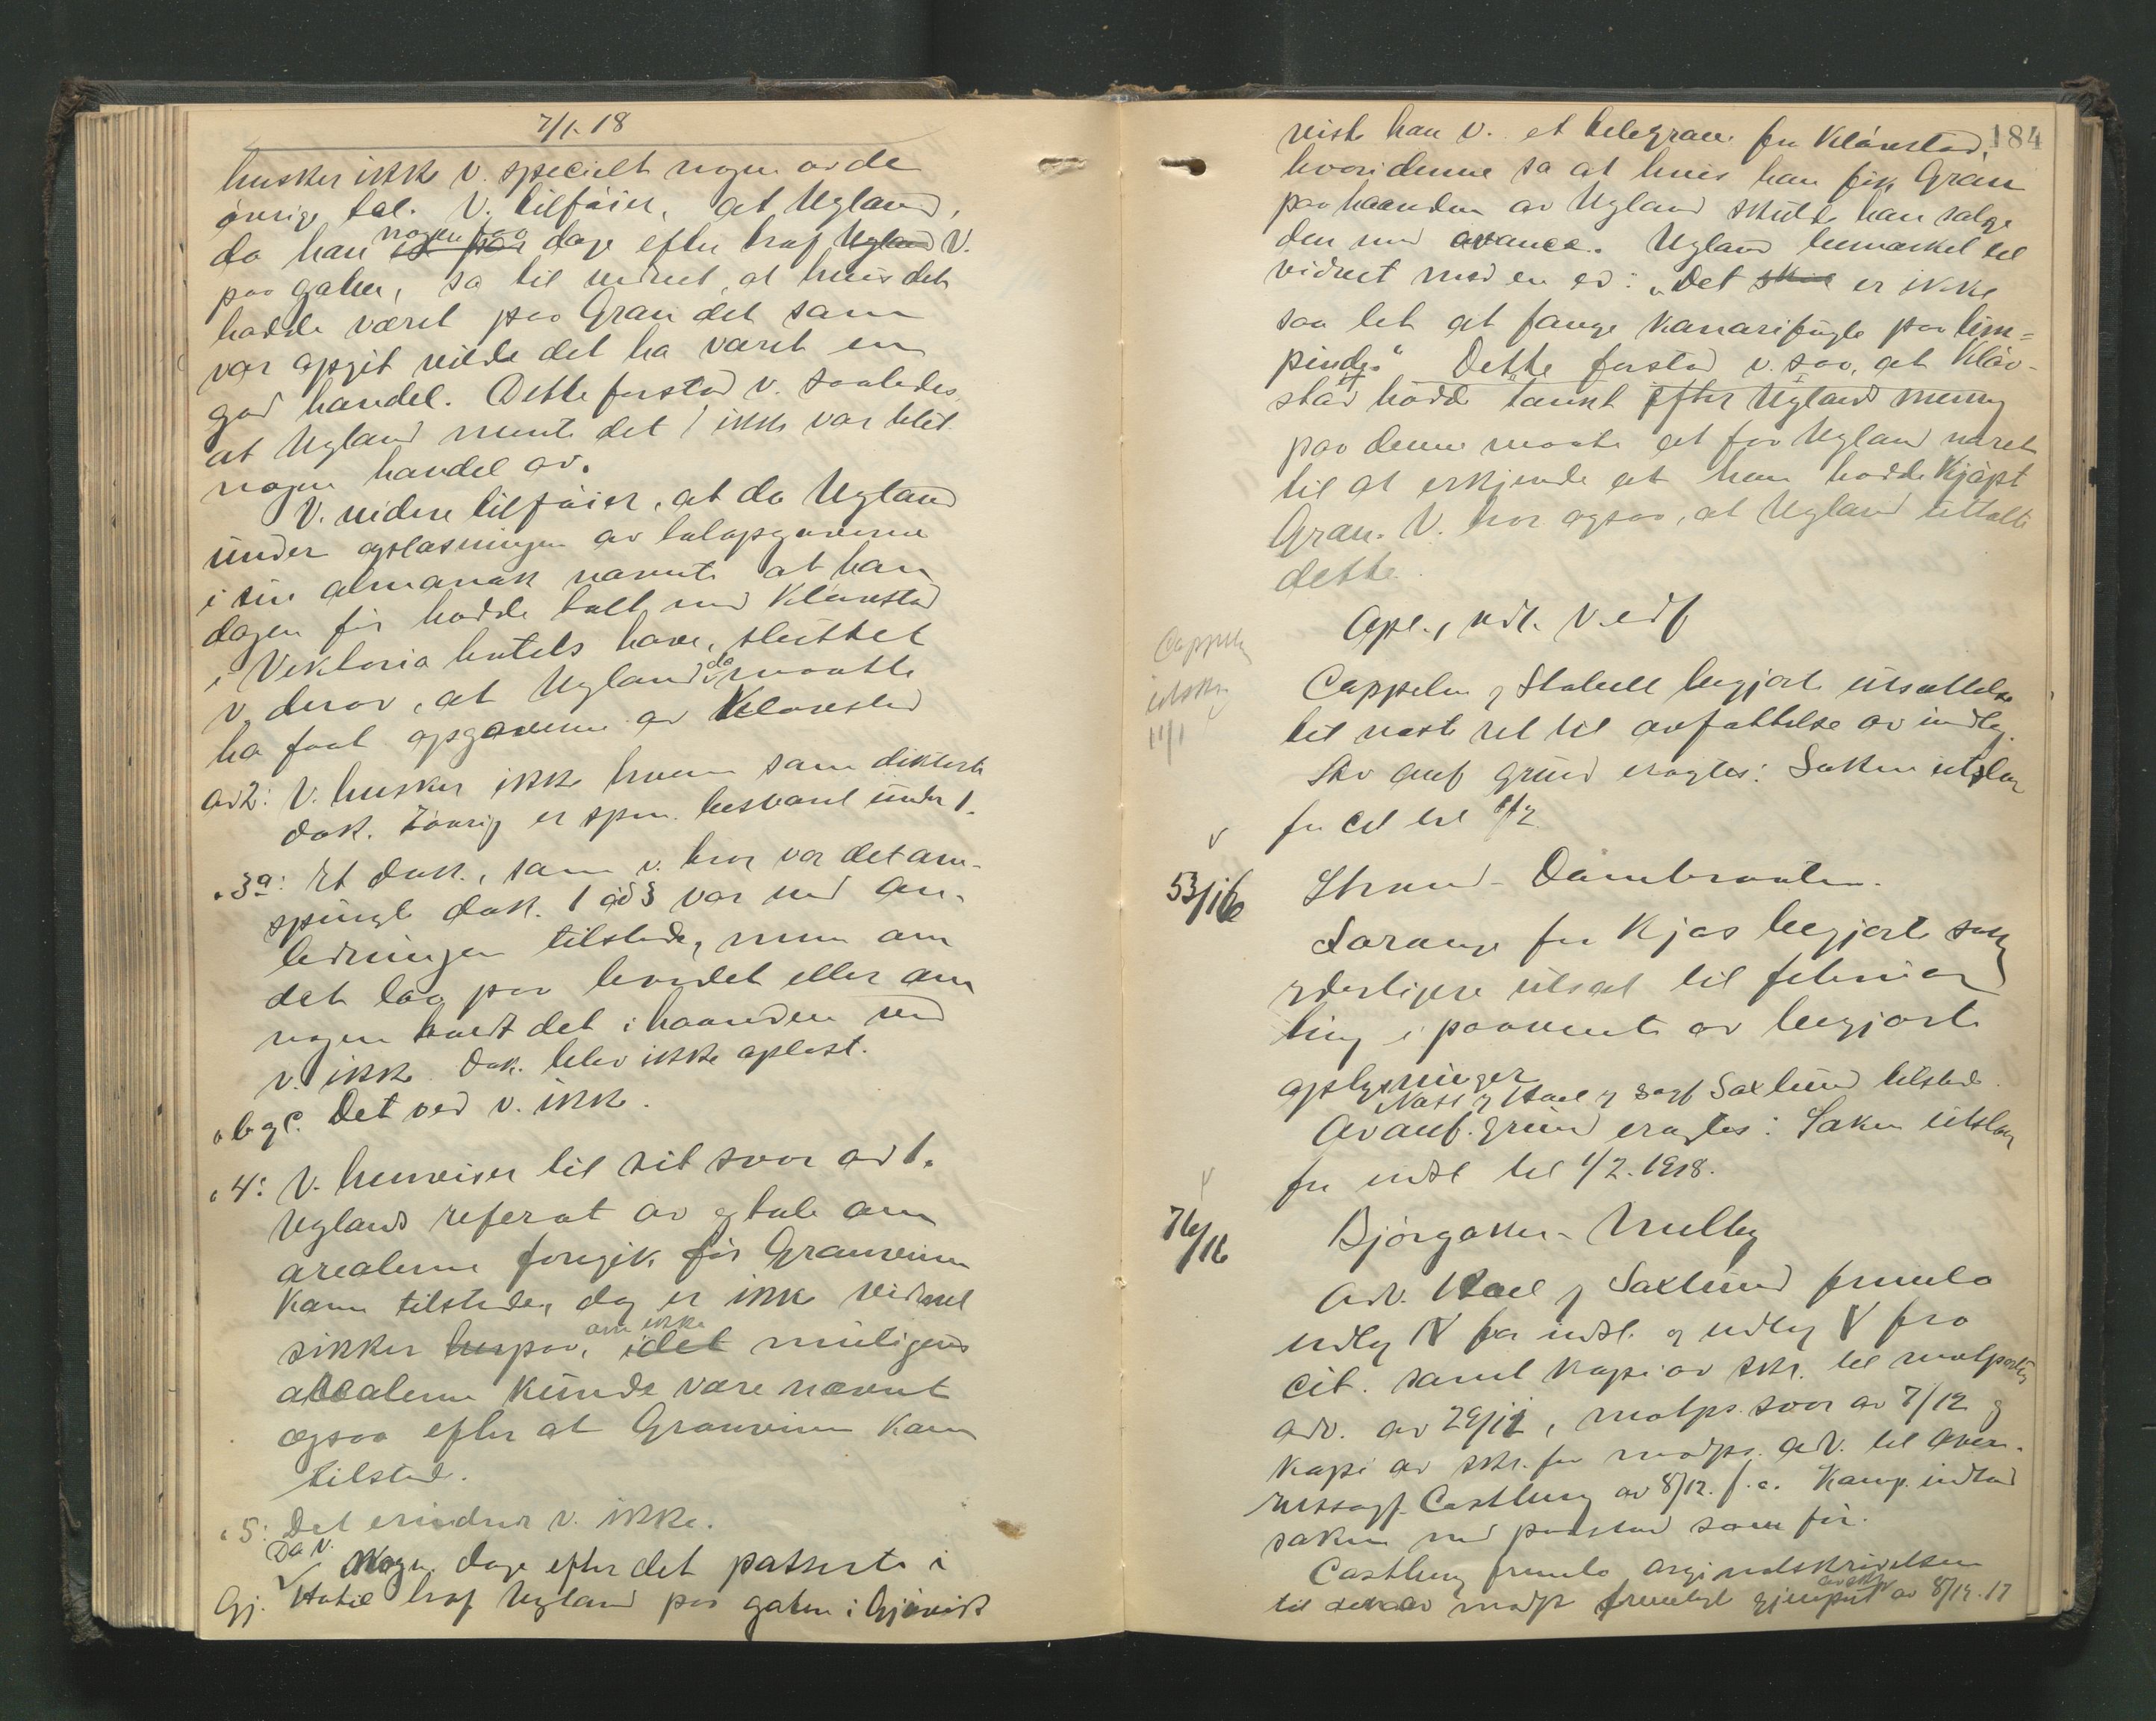 7/1 18
husker ikke v. specielt nogen av de
øvrige tal. V. tilføier, at Ugland,
da han nogen faa dage efter traf Ugland V.
paa gaten, sa til vidnet, at hvis det
hadde været paa Gran det som
var opgit vilde det ha været en
god handel. Dette forstod v. saaledes
at Ugland mente det ikke var blit
nogen handel av.
V. videre tilføier, at da Ugland
under oplæsningen av talopgaverne
i sin almanak nævnte at han
dagen før hadde talt med Kløvestad
i Viktoria hotels have, sluttet
v. derav, at Ugland da maatte
ha faat opgaverne av Kløvestad
ad 2: V. husker ikke hvem som dikterte
dok. Iøvrig er spm. besvaret under 1.
" 3a: Et dok., som v. tror var det om-
spurgte dok. 1 ad 3 var ved an-
ledningen tilstede, men om
det laa paa bordet eller om
nogen hadt det i haanden ved
v. ikke. Dok. blev ikke oplæst.
" b og c. Det ved v. ikke.
" 4: V. henviser til sit svar ad 1.
Uglands referat av og tale om
arealerne foregik før Granveien
kom tilstede, dog er ikke vidnet
sikker herpaa, om ikke idet muligens
arealerne kunde være nævnt
ogsaa efter at Granveien kom
tilstede.
" 5: Det erindrer v. ikke.
Da v. Nogen dage efter det passerte i
Gj. Hotel traf Ugland paa gaten i Gjøvik
184
viste han v. et telegram fra Kløvestad,
hvori denne sa at hvis han fik Gran
paa haanden av Ugland skulde han sælge
den med avance. Ugland bemærket til
vidnet med en ed: "Det skal er ikke
saa let at fange kanarifugle paa lim=
pinde." Dette forstod v. saa, at Kløv-
stad hadde tænkt efter Uglands mening
paa denne maate at faa Ugland
til at erkjende at han hadde kjøpt
Gran. V. tror ogsaa, at Ugland uttalte
dette.
Opl., vdt. V. edf
Cappelen
utskr
11/1
Cappelen og Stabell begjærte utsættelse
til næste ret til avfattelse av indlæg.
Av anf grund eragtes: Saken utstaar
for cit til 1/2
53/16
Strand - Dambraaten.
Sørange for Kjos begjærte saken
yderligere utsat til februar
ting i paavente av begjærte
oplysninger
Næss og Hoel og sagf Saxlund tilstede.
Av anf. grund eragtes: Saken utstaar
for indst til 1/2. 1918.
76/16
Bjørgaker - Mulby
Adv. Hoel og Saxlund fremla
indlæg IV fra indst. og indlæg V fra
cit. samt kopi av skr. til motparts
adv. av 29/11, motps. svar av 7/12 og
kopi av skr. fra motps. adv. til over-
retssagf. Castberg av 8/12. f.a. Komp. indlod
saken med paastand som før.
Castberg fremla originalskrivelsen
til den av motp fremlagt gjenpart avskr av 8/12.17